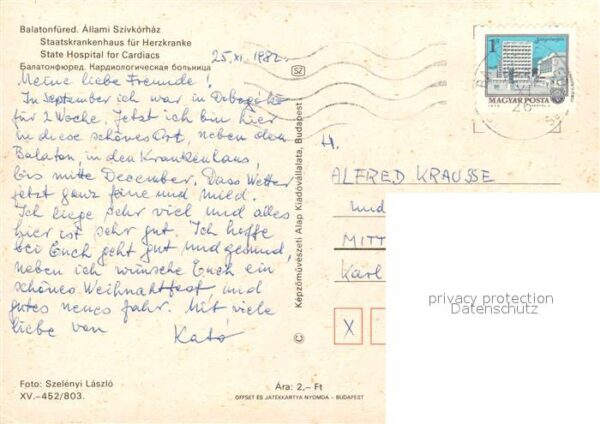 Balatonfüred. Állami Szívkórház
Staatskrankenhaus für Herzkranke
State Hospital for Cardiacs
Балатонфюред. Кардиологическая больница
25.XI. 1982.
Meine liebe Freunde!
In September ich war in
für 2 Woche. Jetzt ich bin hier
in diese schönes Ort, neben den
Balaton, in den Krankenhaus,
bis mitte December. Dass Wetter
jetzt ganz föne und mild.
Ich liege sehr viel und alles
hier ist sehr gut. Ich hoffe
bei Euch geht gut und gesund,
neben ich wünsche Euch ein
schönes Weihnachtfest und
gutes neues Jahr. Mit viele
liebe von Kató
Foto: Szelényi László
XV.–452/803.
SZ
Képzőművészeti Alap Kiadóvállalata, Budapest
Ára: 2,– Ft
OFFSET ÉS JÁTÉKKÁRTYA NYOMDA – BUDAPEST
1 Ft
MAGYAR POSTA
H.
ALFRED KRAUSSE
und
MITT
Karl
X
privacy protection
Datenschutz